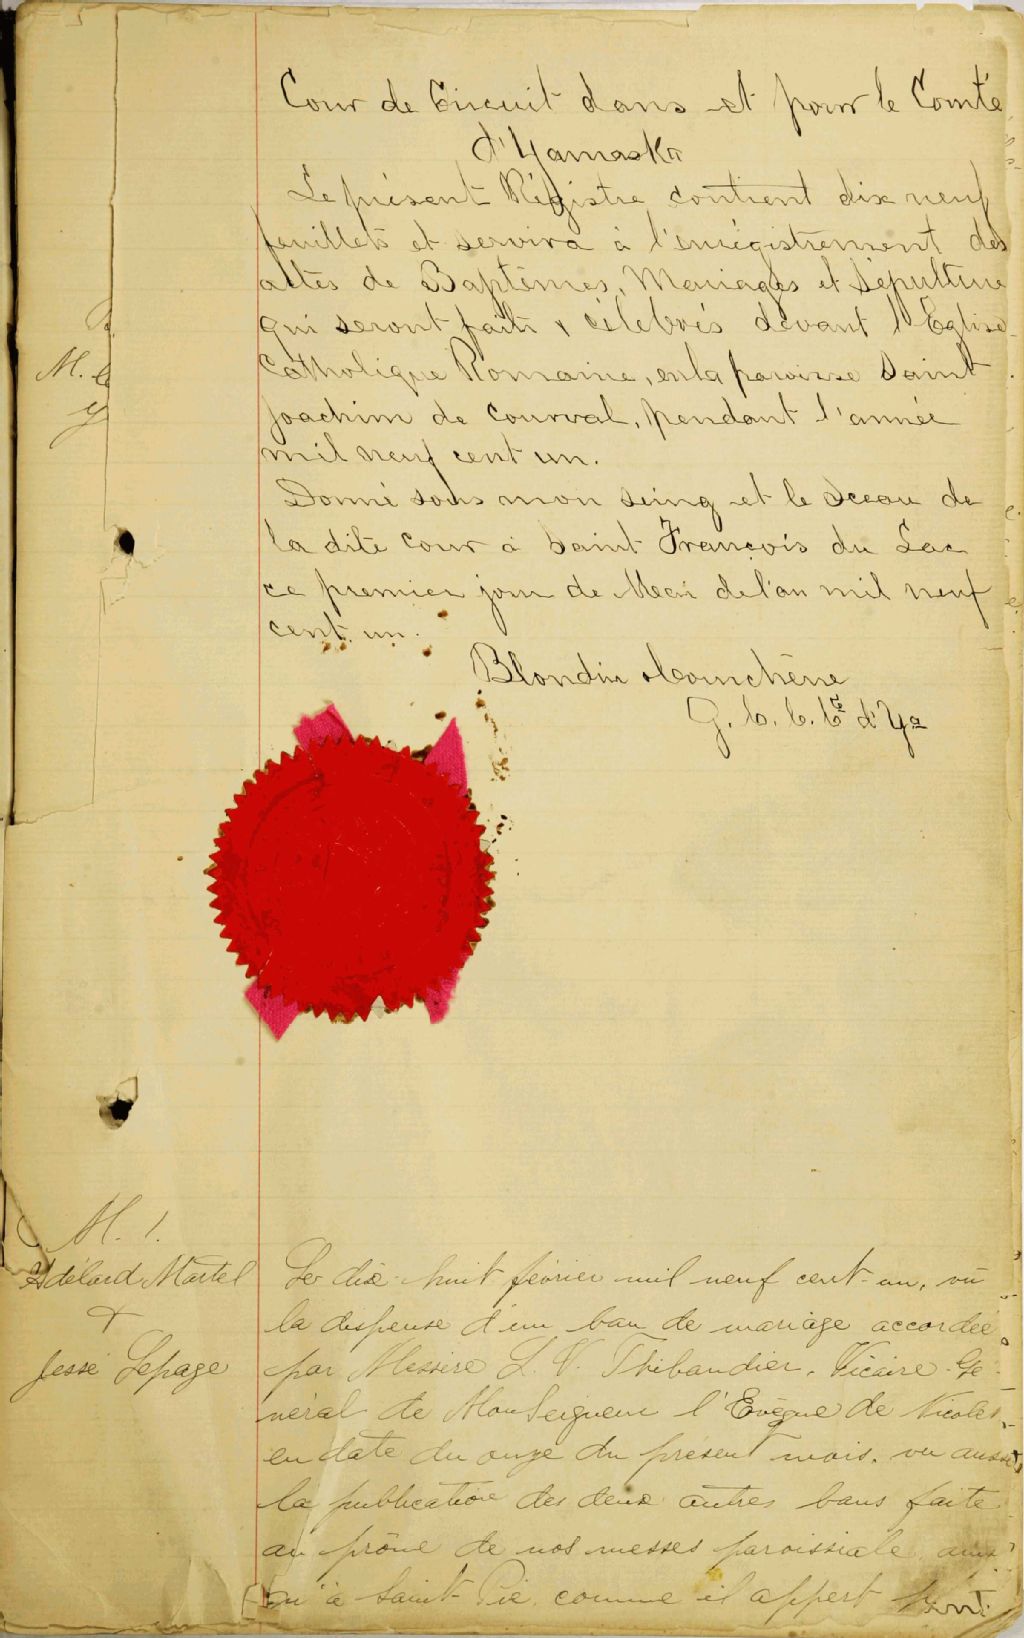 Cour de Circuit dans et pour le Comté
d'Yamaska
Le présent Régistre contient dix neuf
feuillets et servira à l'enrégistrement des
actes de Baptêmes, Mariages et Sépulture
qui seront faits & célébrés devant l'Eglise
Catholique Romaine, en la paroisse Saint
Joachim de Courval, pendant l'année
mil neuf cent un.
Donné sous mon seing et le Sceau de
la dite Cour à Saint François du Lac
ce premier jour de de l'an mil neuf
cent un.
Blondin
G. C. C. Cté d'Ya
M. 1.
Adélard Martel
&
Jessé Lepage
Le dix-huit février mil neuf cent-un, vu
la dispense d'un ban de mariage accordée
par Messire L. V. Thibaudier, Vicaire-Gé-
néral de Monseigneur l'Evêque de Nicolet,
en date du onze du présent mois, vu aussi
la publication des deux autres bans faite
au prône de nos messes paroissiale, ainsi
qu'à Saint-Pie, comme il appert